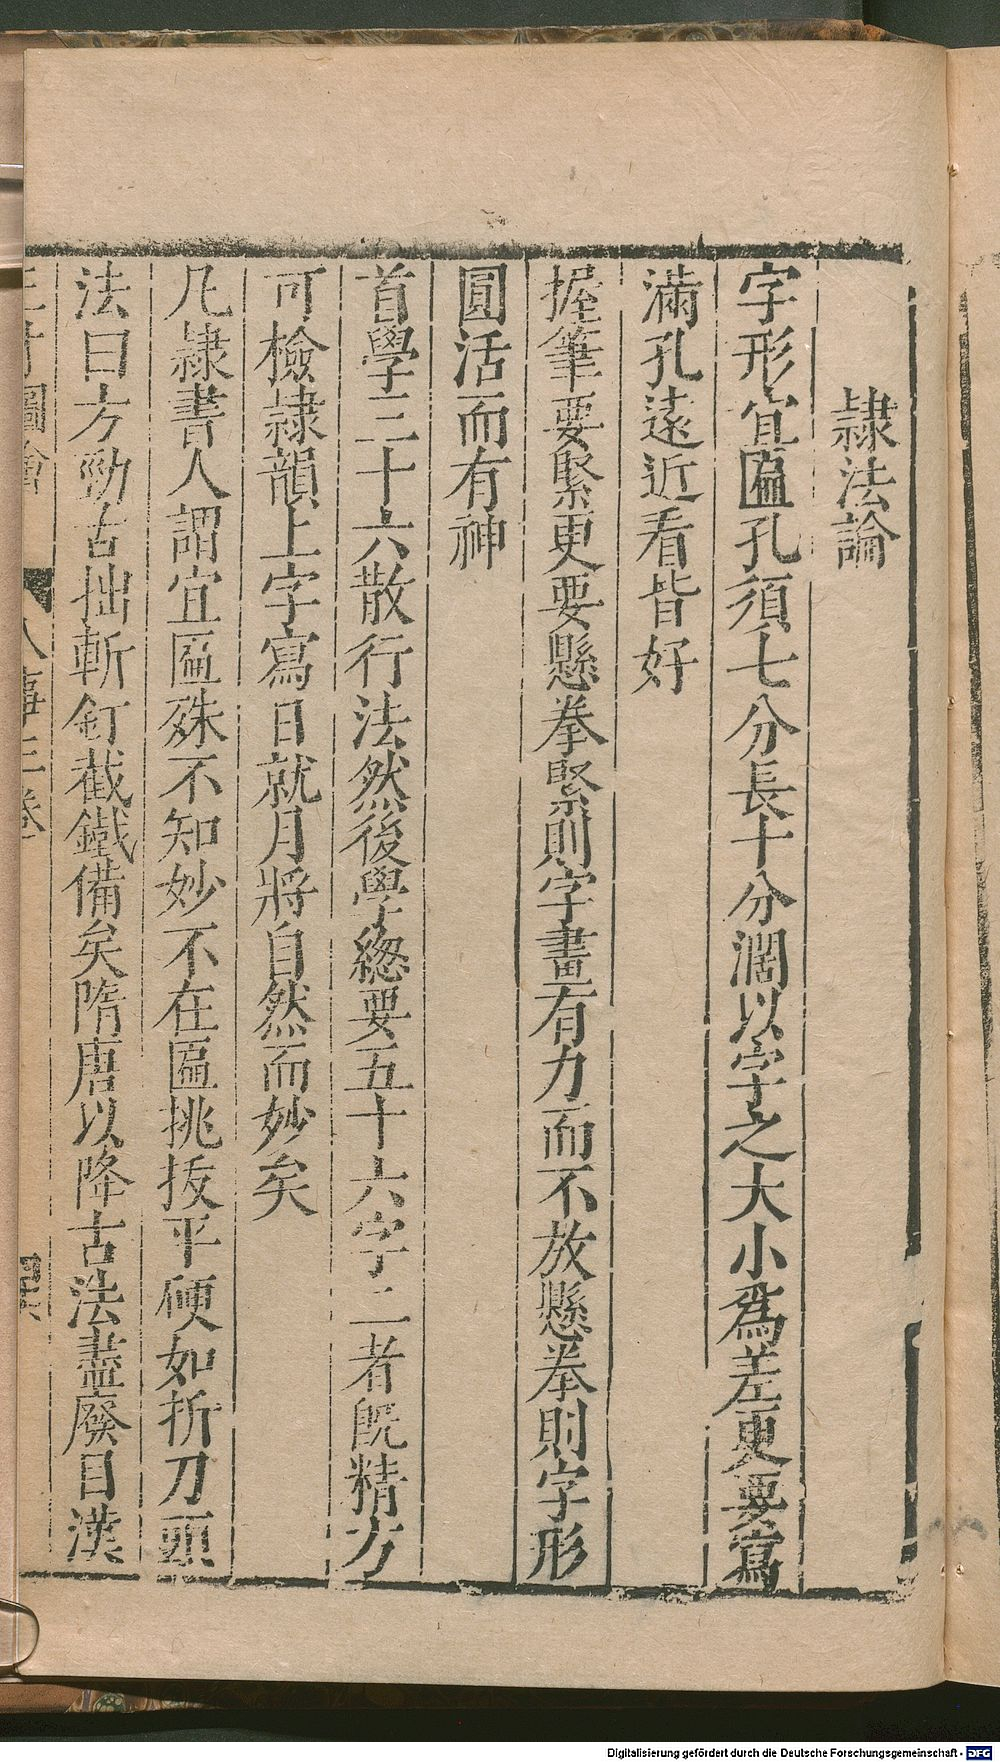 隷法論
字形宜匾孔須七分長十分濶以字之大小爲差更要寫
滿孔遠近看皆好
握筆要緊更要懸拳緊則字畫有力而不放懸拳則字形
圓活而有神
首學三十六散行法然後學緫要五十六字二者旣精方
可檢隷韻上字寫日就月將自然而妙矣
凡隷書人謂宜匾殊不知妙不在匾挑拔平硬如折刀頭
法曰方勁古拙斬釘截鐵備矣隋唐以降古法盡廢目漢
三才圖會 人事三卷
Digitalisierung gefördert durch die Deutsche Forschungsgemeinschaft - DFG